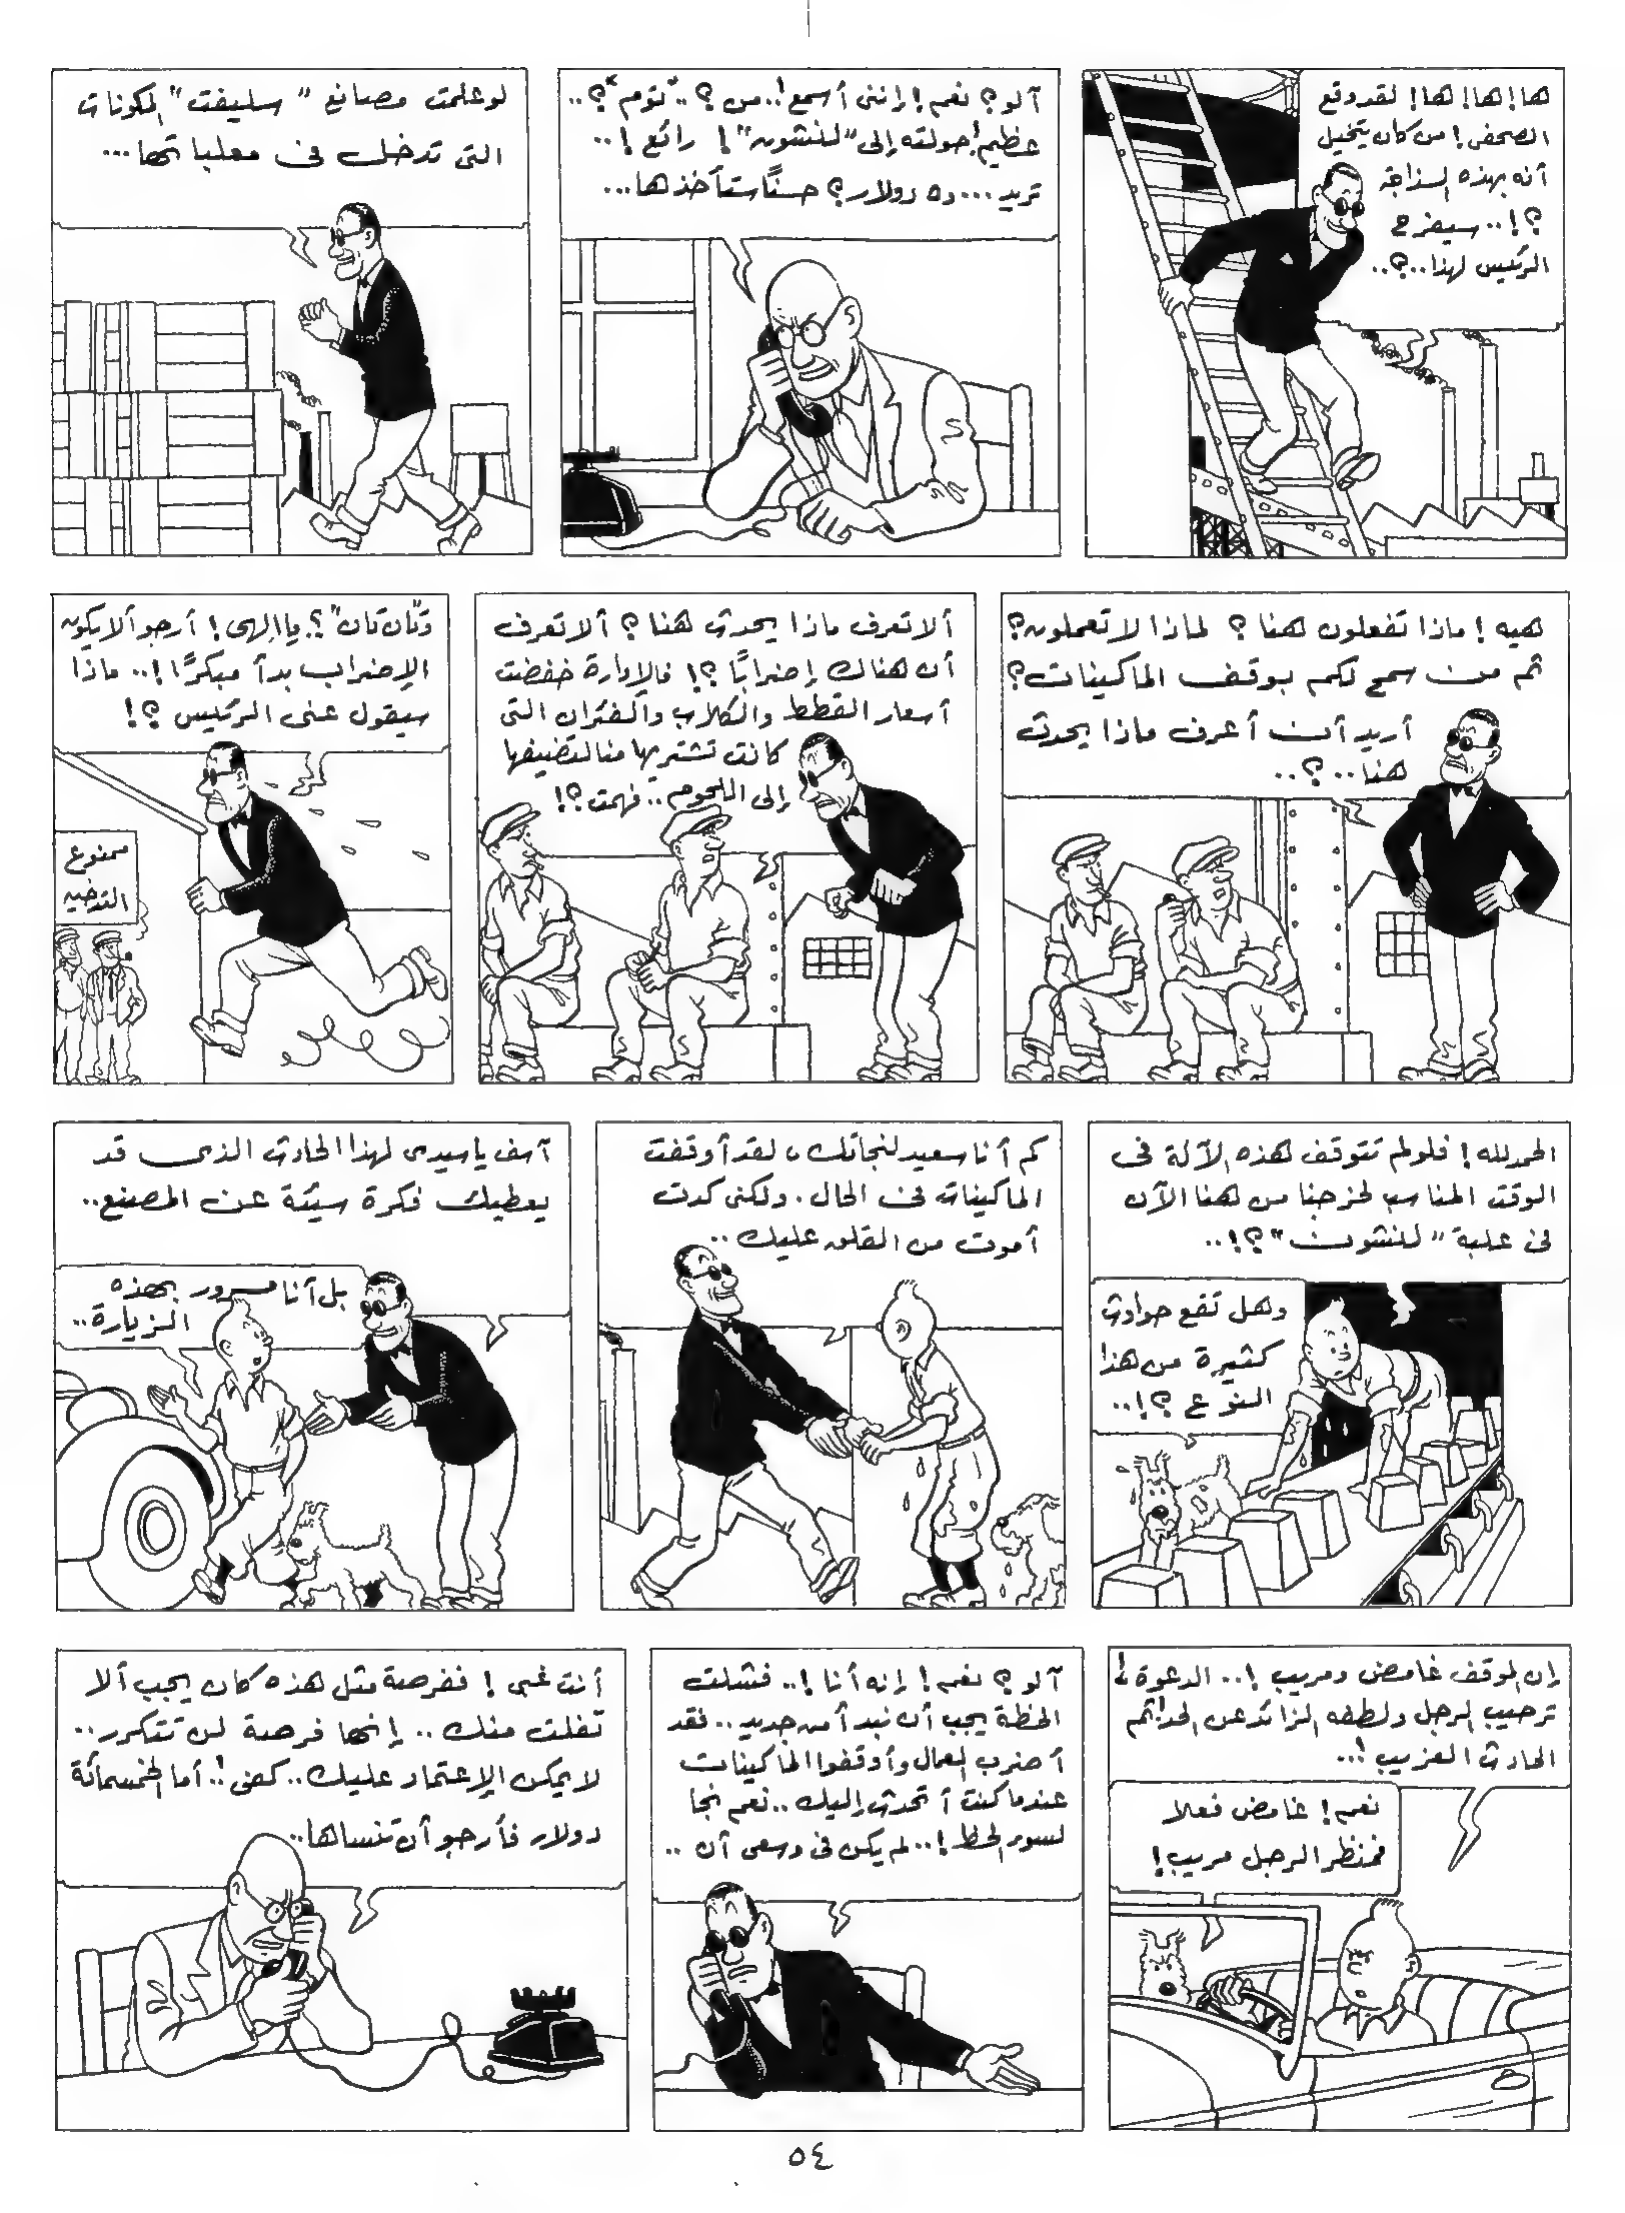 ها! ها! ها! لقد وقع
الصحفى! من كان يتخيل
أنه بهذه السذاجة
؟!.. سيفرح
الرئيس لهذا..؟..
آلو؟ نعم! إننى أسمع!.. من؟.. "توم"؟..
عظيم! حولته إلى "لنشون"! رائع!..
تريد... ٥٠٠ دولار؟ حسنًا ستأخذها...
لو علمت مصانع "سليفت" المكونات
التى تدخل فى معلباتها...
هيه! ماذا تفعلون هنا؟ لماذا لا تعملون؟
ثم من سمح لكم بوقف الماكينات؟
أريد أن أعرف ماذا يحدث
هنا..؟..
ألا تعرف ماذا يحدث هنا؟ ألا تعرف
أن هناك إضرابًا؟! فالإدارة خفضت
أسعار القطط والكلاب والفئران التى
كانت تشتريها منا لتضيفها
إلى اللحوم.. فهمت؟!
و"تان تان"؟. يا إلهى! أرجو ألا يكون
الإضراب بدأ مبكرًا!.. ماذا
سيقول عنى الرئيس؟!
ممنوع
التدخين
الحمد لله! فلو لم تتوقف هذه الآلة فى
الوقت المناسب لخرجنا من هنا الآن
فى علبة "لنشون"؟!..
وهل تقع حوادث
كثيرة من هذا
النوع؟!..
كم أنا سعيد لنجاتك، لقد أوقفت
الماكينات فى الحال. ولكنى كدت
أموت من القلق عليك..
آسف يا سيدى لهذا الحادث الذى قد
يعطيك فكرة سيئة عن المصنع..
بل أنا مسرور بهذه
الزيارة..
إن الموقف غامض ومريب!.. الدعوة!
ترحيب الرجل ولطفه الزائد عن الحد! ثم
الحادث الغريب!..
نعم! غامض فعلا
فمنظر الرجل مريب!
آلو؟ نعم! إنه أنا!.. فشلت
الخطة يجب أن نبدأ من جديد.. فقد
أضرب العمال وأوقفوا الماكينات
عندما كنت أتحدث إليك.. نعم نجا
لسوء الحظ!.. لم يكن فى وسعى أن..
أنت غبى! ففرصة مثل هذه كان يجب ألا
تفلت منك.. إنها فرصة لن تتكرر..
لا يمكن الإعتماد عليك.. كفى!.. أما الخمسمائة
دولار فأرجو أن تنساها..
٥٤